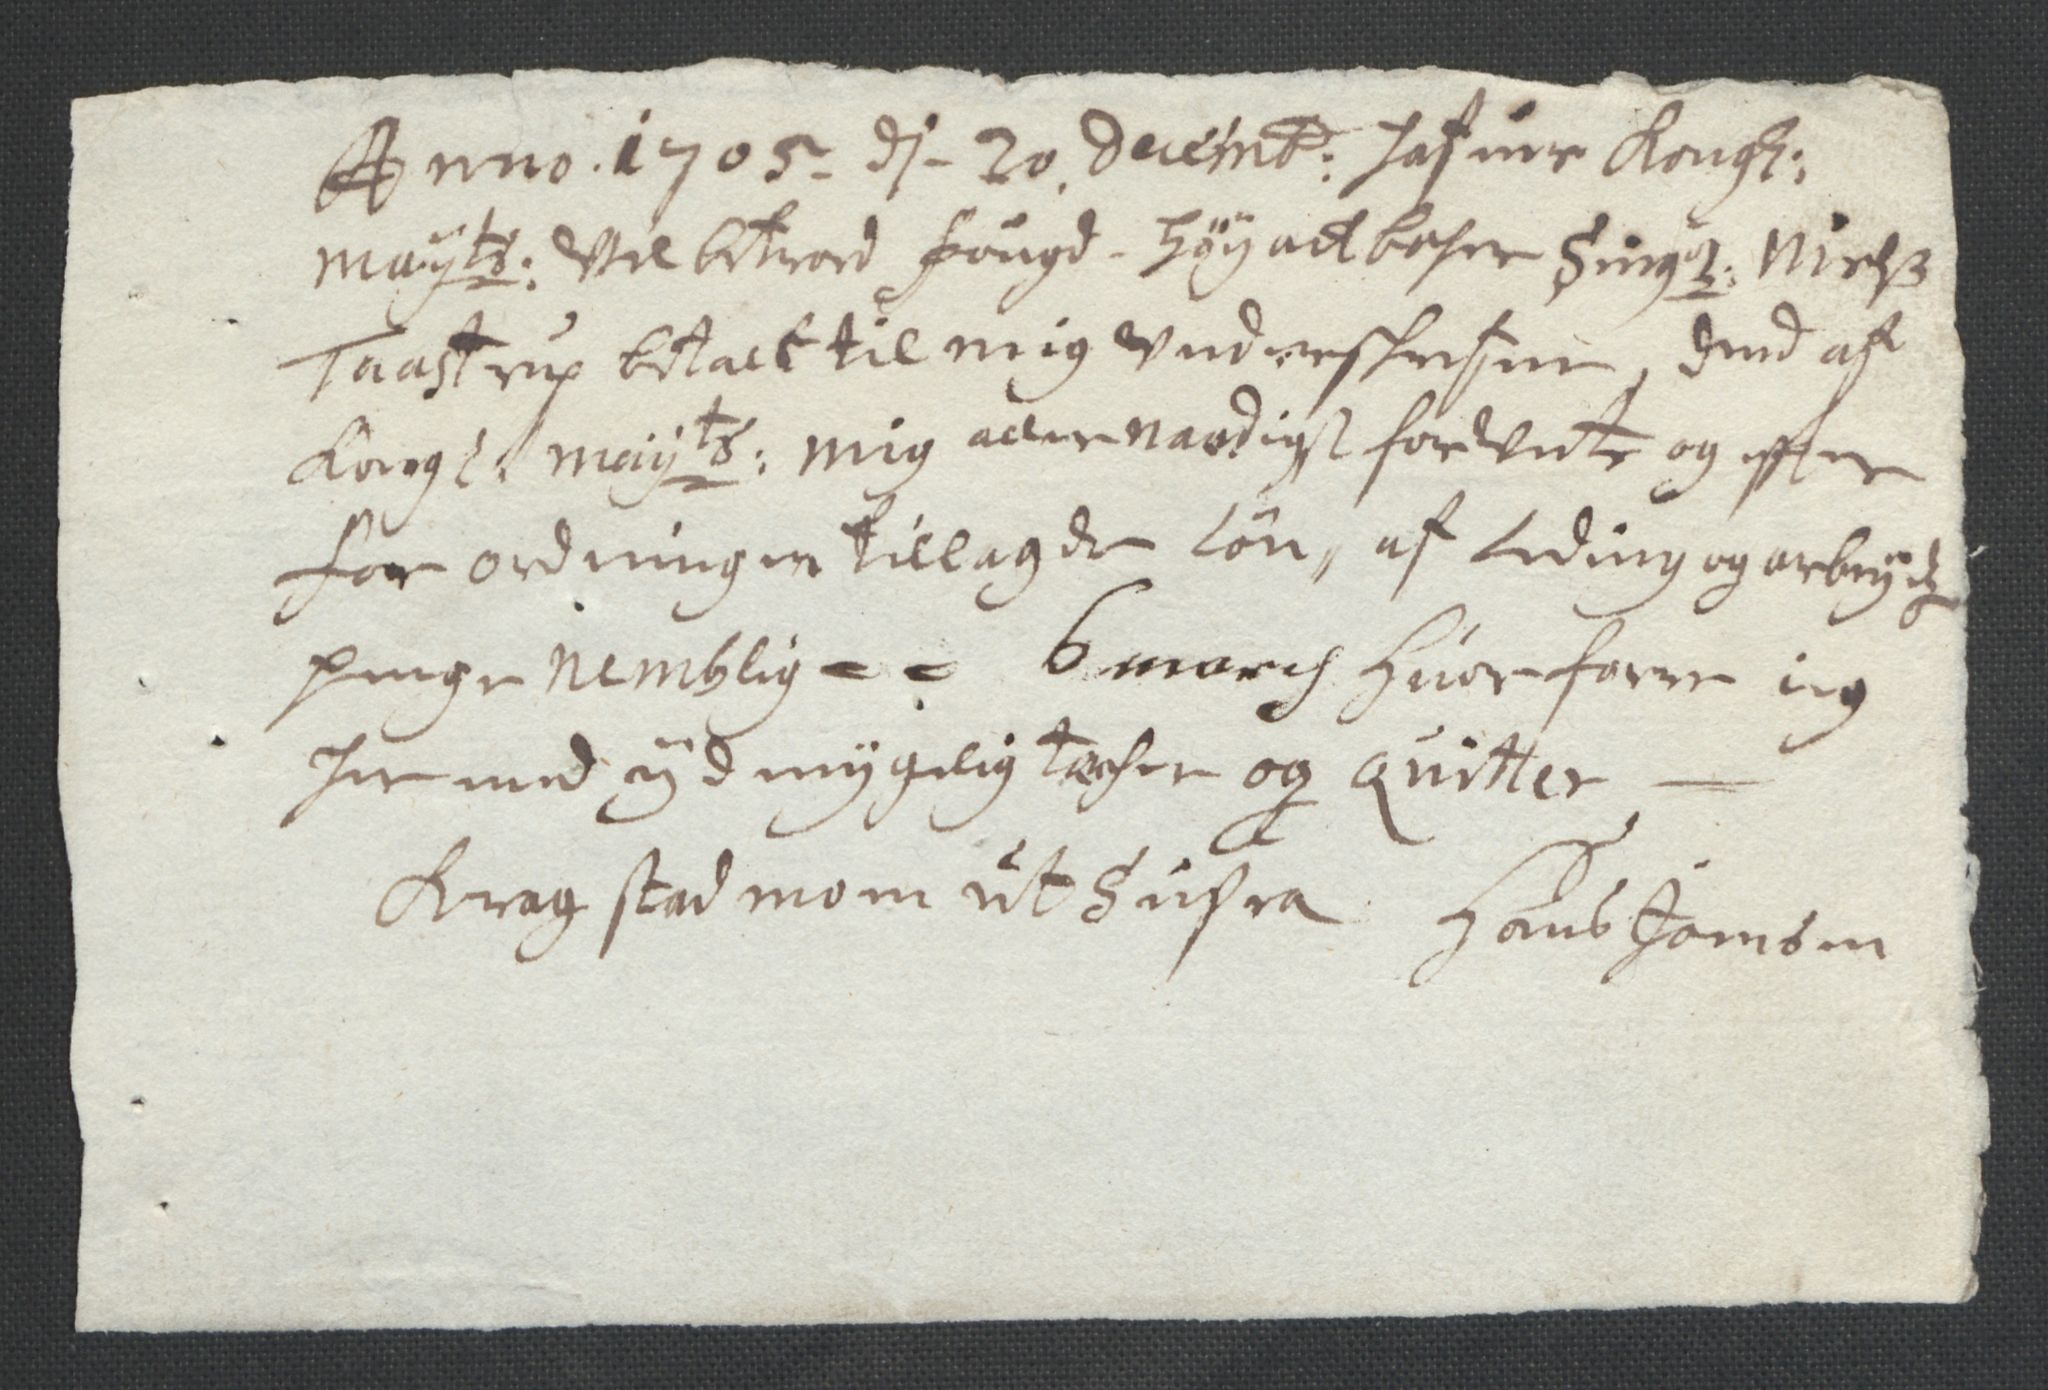 Anno. 1705 dj 20. decemb: hafuer Kongl:
mayts: Vel betroed fougd - høyactbahre Sing{r}: Nielß
Taastrup betalt til mig Underskrefuen, dend af
Kongl: mayts: mig allernaadigst forUnte og effter
for ordningen tillagde Lön, af Leding og arbeyds
penge nemblig - - 6 march huorforre ieg
her med ÿdmÿgelig tacher og Quitter —
Kragstad moen ut Supra Hans Joensen